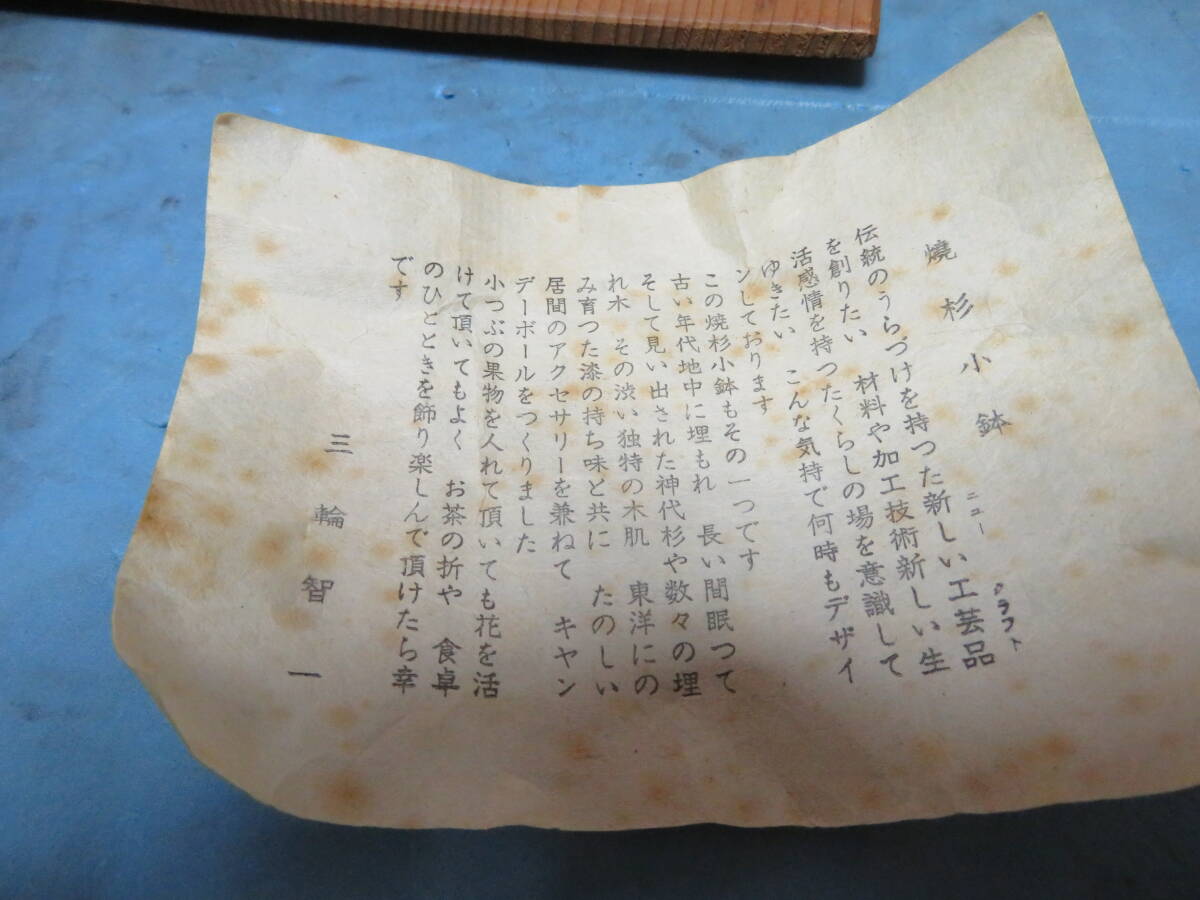 燒杉小鉢
伝統のうらづけを持つた新しい工芸品
ニュークラフト
を創りたい 材料や加工技術新しい生
活感情を持つたくらしの場を意識して
ゆきたい こんな気持で何時もデザイ
ンしております
この焼杉小鉢もその一つです
古い年代地中に埋もれ 長い間眠つて
そして見い出された神代杉や数々の埋
れ木 その渋い独特の木肌 東洋にの
み育つた漆の持ち味と共に たのしい
居間のアクセサリーを兼ねて キヤン
デーボールをつくりました
小つぶの果物を入れて頂いても花を活
けて頂いてもよく お茶の折や 食卓
のひとときを飾り楽しんで頂けたら幸
です
三輪智一